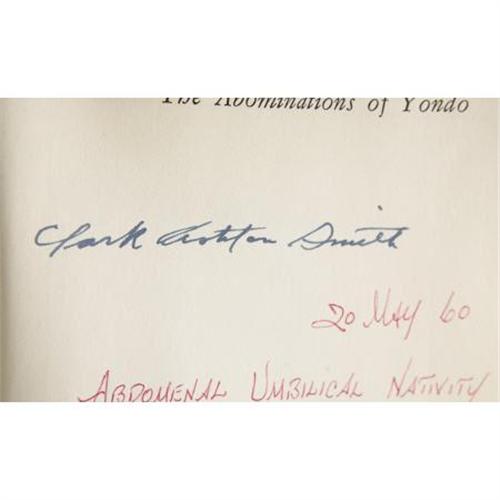 The Abominations of Yondo
Clark Ashton Smith
20 MAY 60
ABDOMENAL UMBILICAL NATIVITY